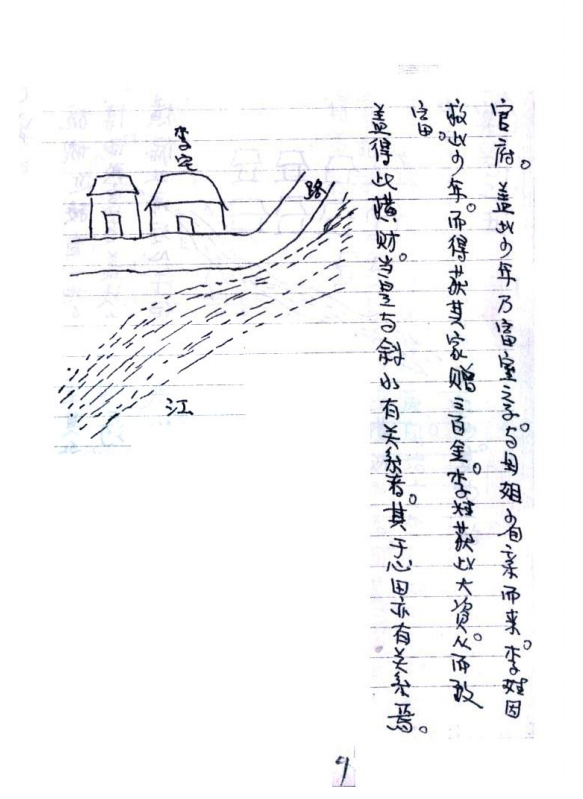 官府。盖此少年乃富室之子。与母姐省亲而来。李姓因
救此少年。而得获其家赠三百金。李姓获此大资。从而致
富。
盖得此横财。当是与斜水有关系着。其于心田亦有关系焉。
李宅
路
江